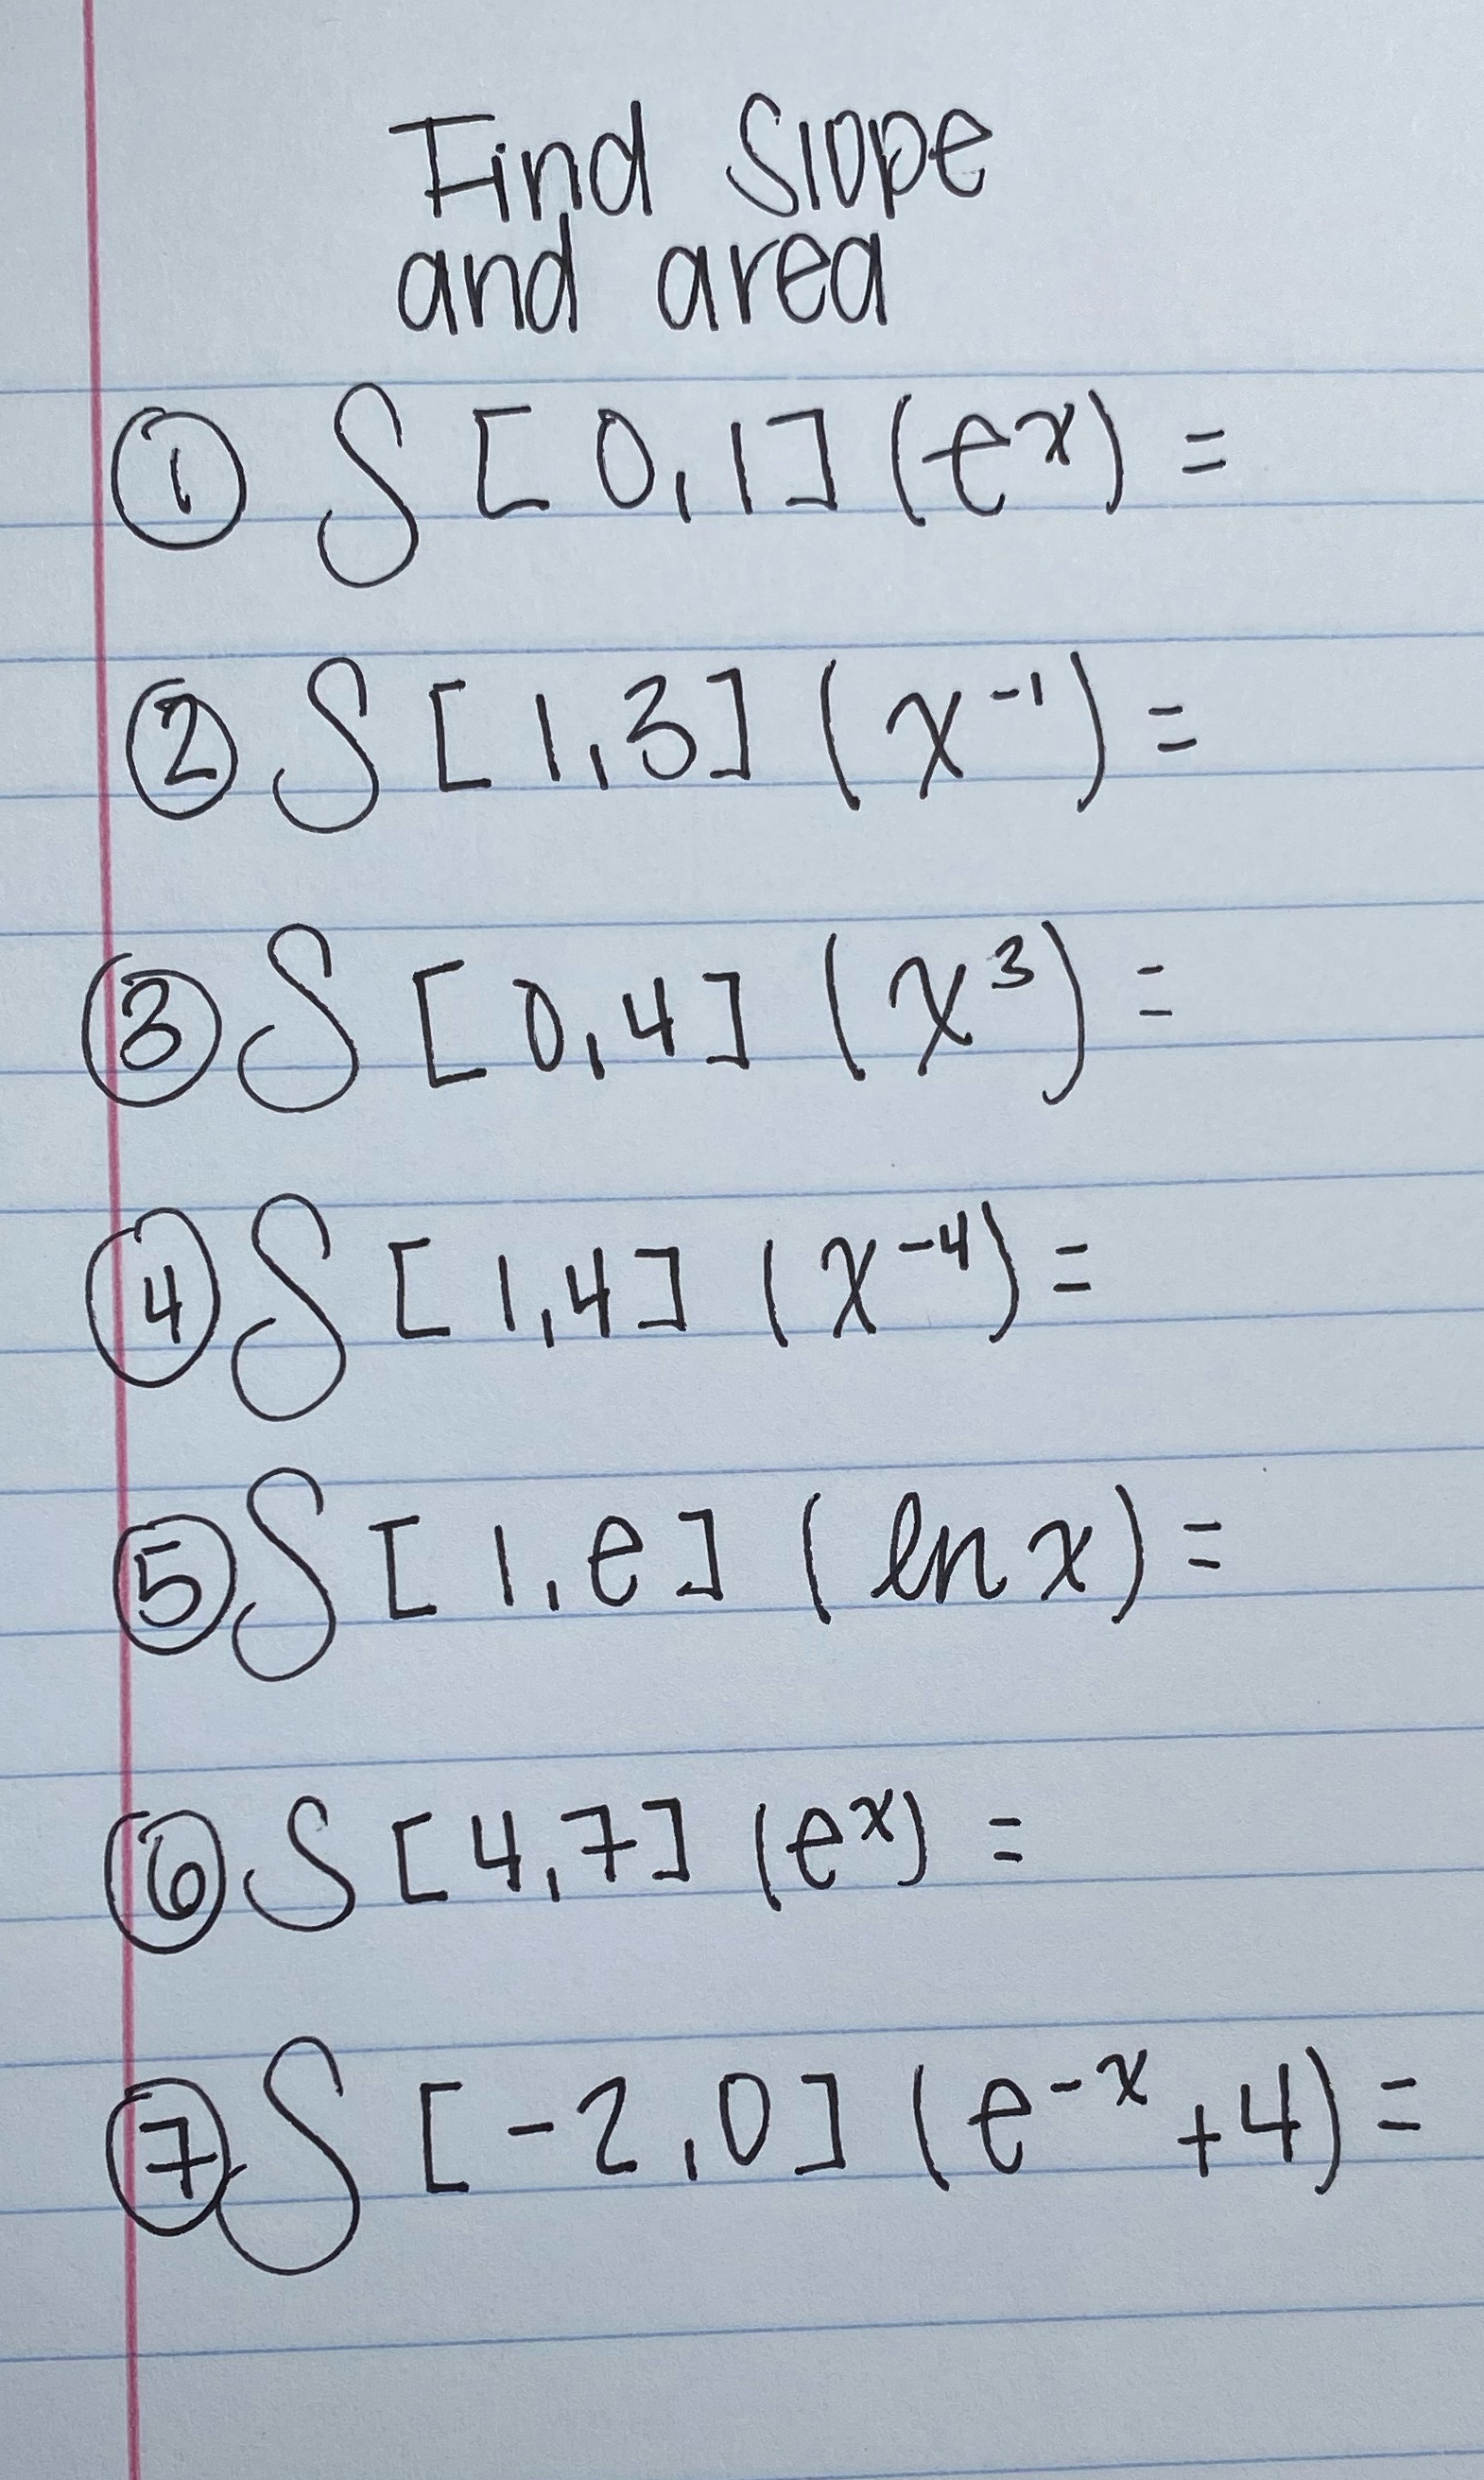 Find Slope
and area
① ∫ [0,1] (eˣ) =
② ∫ [1,3] (x⁻¹) =
③ ∫ [0,4] (x³) =
④ ∫ [1,4] (x⁻⁴) =
⑤ ∫ [1,e] (ln x) =
⑥ ∫ [4,7] (eˣ) =
⑦ ∫ [-2,0] (e⁻ˣ + 4) =